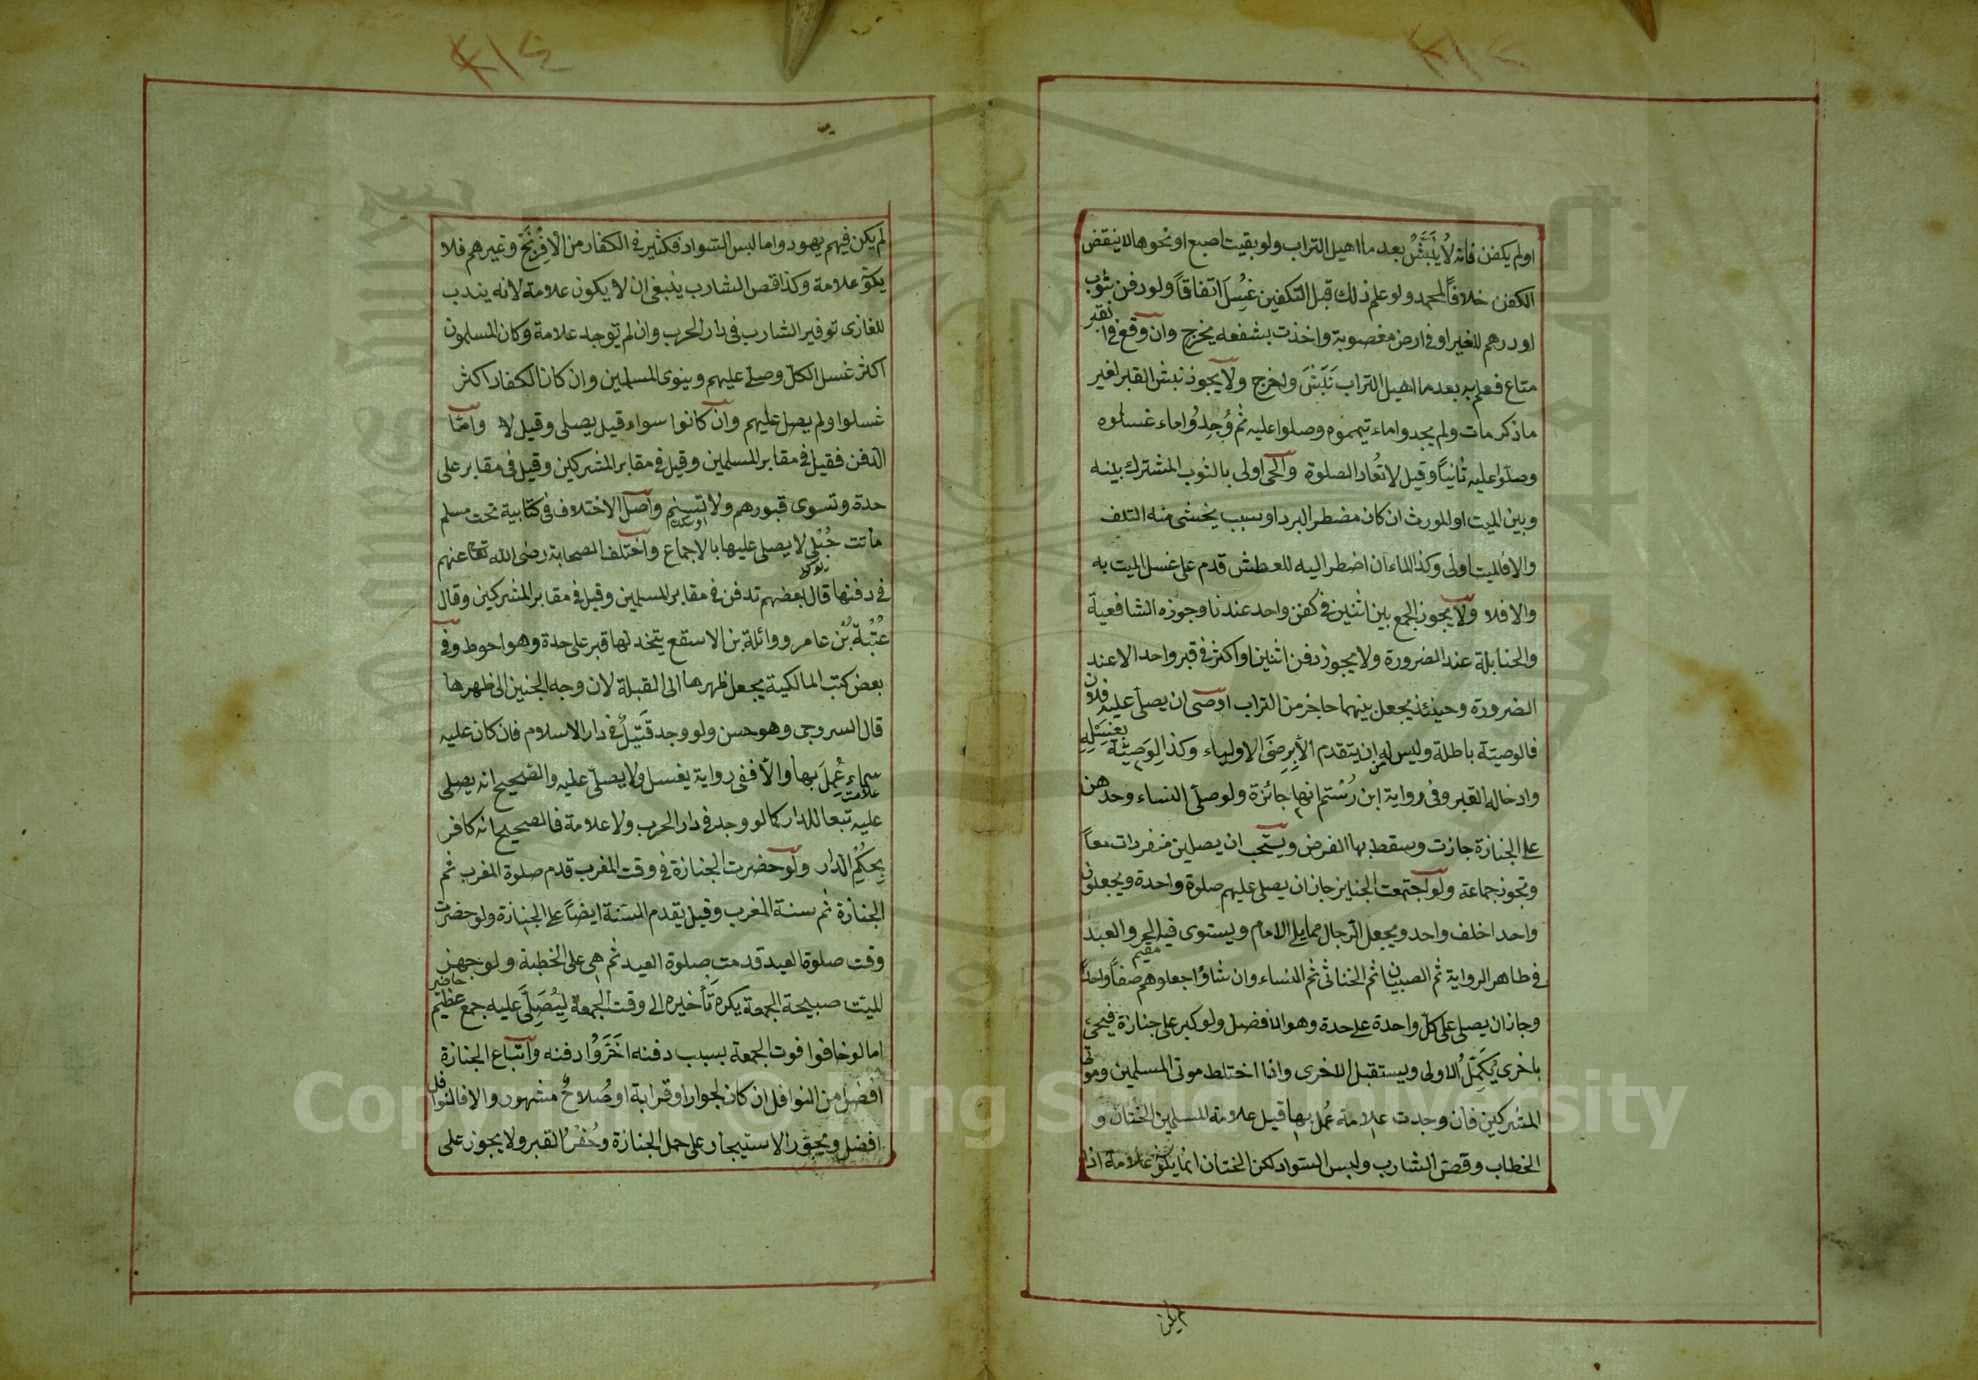 اولم يكفن فانه لا ينبش بعد ما اهيل التراب ولو بقيت اصبع او نحوها لا ينقض
الكفن خلافا لمحمد ولو علم ذلك قبل التكفين غسل اتفاقا ولو دفن بثوب
او درهم للغير او في ارض مغصوبة واخذت بشفعه يخرج وان وقع في القبر
متاع فعلم به بعد ما اهيل التراب نبش واخرج ولا يجوز نبش القبر لغير
ما ذكر مات ولم يجدوا ماء تيمموه وصلوا عليه ثم وجدوا ماء غسلوه
وصلوا عليه ثانيا وقيل لا تعاد الصلوة والحى اولى بالثوب المشترك بينه
وبين الميت او المورث ان كان مضطر البرد او سبب يخشى منه التلف
والا فالميت اولى وكذا الماء ان اضطر اليه للعطش قدم على غسل الميت به
والا فلا ولا يجوز الجمع بين اثنين في كفن واحد عندنا وجوزه الشافعية
والحنابلة عند الضرورة ولا يجوز دفن اثنين او اكثر في قبر واحد الا عند
الضرورة وحينئذ يجعل بينهما حاجز من التراب اوصى ان يصلى عليه فلان
فالوصية باطلة وليس له ان يتقدم الا برضى الاولياء وكذا الوصية بغسله
وادخاله القبر وفى رواية ابن رستم انها جائزة ولو صلى النساء وحدهن
على الجنازة جازت وسقط بها الفرض ويستحب ان يصلين منفردات معا
وتجوز جماعة ولو اجتمعت الجنايز جاز ان يصلى عليهم صلوة واحدة ويجعلون
واحدا خلف واحد ويجعل الرجال مما يلى الامام ويستوى فيه الحر والعبد
في ظاهر الرواية ثم الصبيان ثم الخناثى ثم النساء وان شاؤا جعلوهم صفا واحدا
وجاز ان يصلى على كل واحدة على حدة وهو الافضل ولو كبر على جنازة فجئ
باخرى يكمل الاولى ويستقبل الاخرى واذا اختلط موتى المسلمين وموتى
المشركين فان وجدت علامة عمل بها قيل علامة المسلمين الختان و
الخطاب وقص الشارب ولبس السواد لكن الختان انما يكون علامة اذا
لم يكن
لم يكن فيهم يهود واما لبس السواد فكثير في الكفار من الافرنج وغيرهم فلا
يكون علامة وكذا قص الشارب ينبغى ان لا يكون علامة لانه يندب
للغازى توفير الشارب فى دار الحرب وان لم توجد علامة وكان المسلمون
اكثر غسل الكل وصلى عليهم وينوى المسلمين وان كان الكفار اكثر
غسلوا ولم يصل عليهم وان كانوا سواء قيل يصلى وقيل لا واما
الدفن فقيل في مقابر المسلمين وقيل في مقابر المشركين وقيل في مقابر على
حدة وتسوى قبورهم ولا تسنم واصل الاختلاف في كتابية تحت مسلم
ماتت حبلى لا يصلى عليها بالاجماع واختلف الصحابة رضى الله تعالى عنهم
في دفنها قال بعضهم تدفن في مقابر المسلمين وقيل في مقابر المشركين وقال
عتبة بن عامر وواثلة بن الاسقع يتخذ لها قبر على حدة وهو احوط وفي
بعض كتب المالكية يجعل ظهرها الى القبلة لان وجه الجنين الى ظهرها
قال السروجى وهو حسن ولو وجد قتيل في دار الاسلام فان كان عليه
سماء عمل بها والا ففى رواية يغسل ولا يصلى عليه والصحيح انه يصلى
علامت
عليه تبعا للدار كما لو وجد في دار الحرب ولا علامة فالصحيح انه كافر
بحكم الدار ولو حضرت الجنازة في وقت المغرب قدم صلوة المغرب ثم
الجنازة ثم سنة المغرب وقيل يقدم السنة ايضا على الجنازة ولو حضرت
وقت صلوة العيد قدمت صلوة العيد ثم هي على الخطبة ولو جهز
الميت صبيحة الجمعة يكره تأخيره الى وقت الجمعة ليصلى عليه جمع عظيم
اما لو خافوا فوت الجمعة بسبب دفنه اخروا دفنه واتباع الجنازة
افضل من النوافل ان كان لجوار او قرابة او صلاح مشهور والا فالنوافل
افضل ويجوز الاستيجار على حمل الجنازة وحفر القبر ولا يجوز على
Copyright © King Saud University